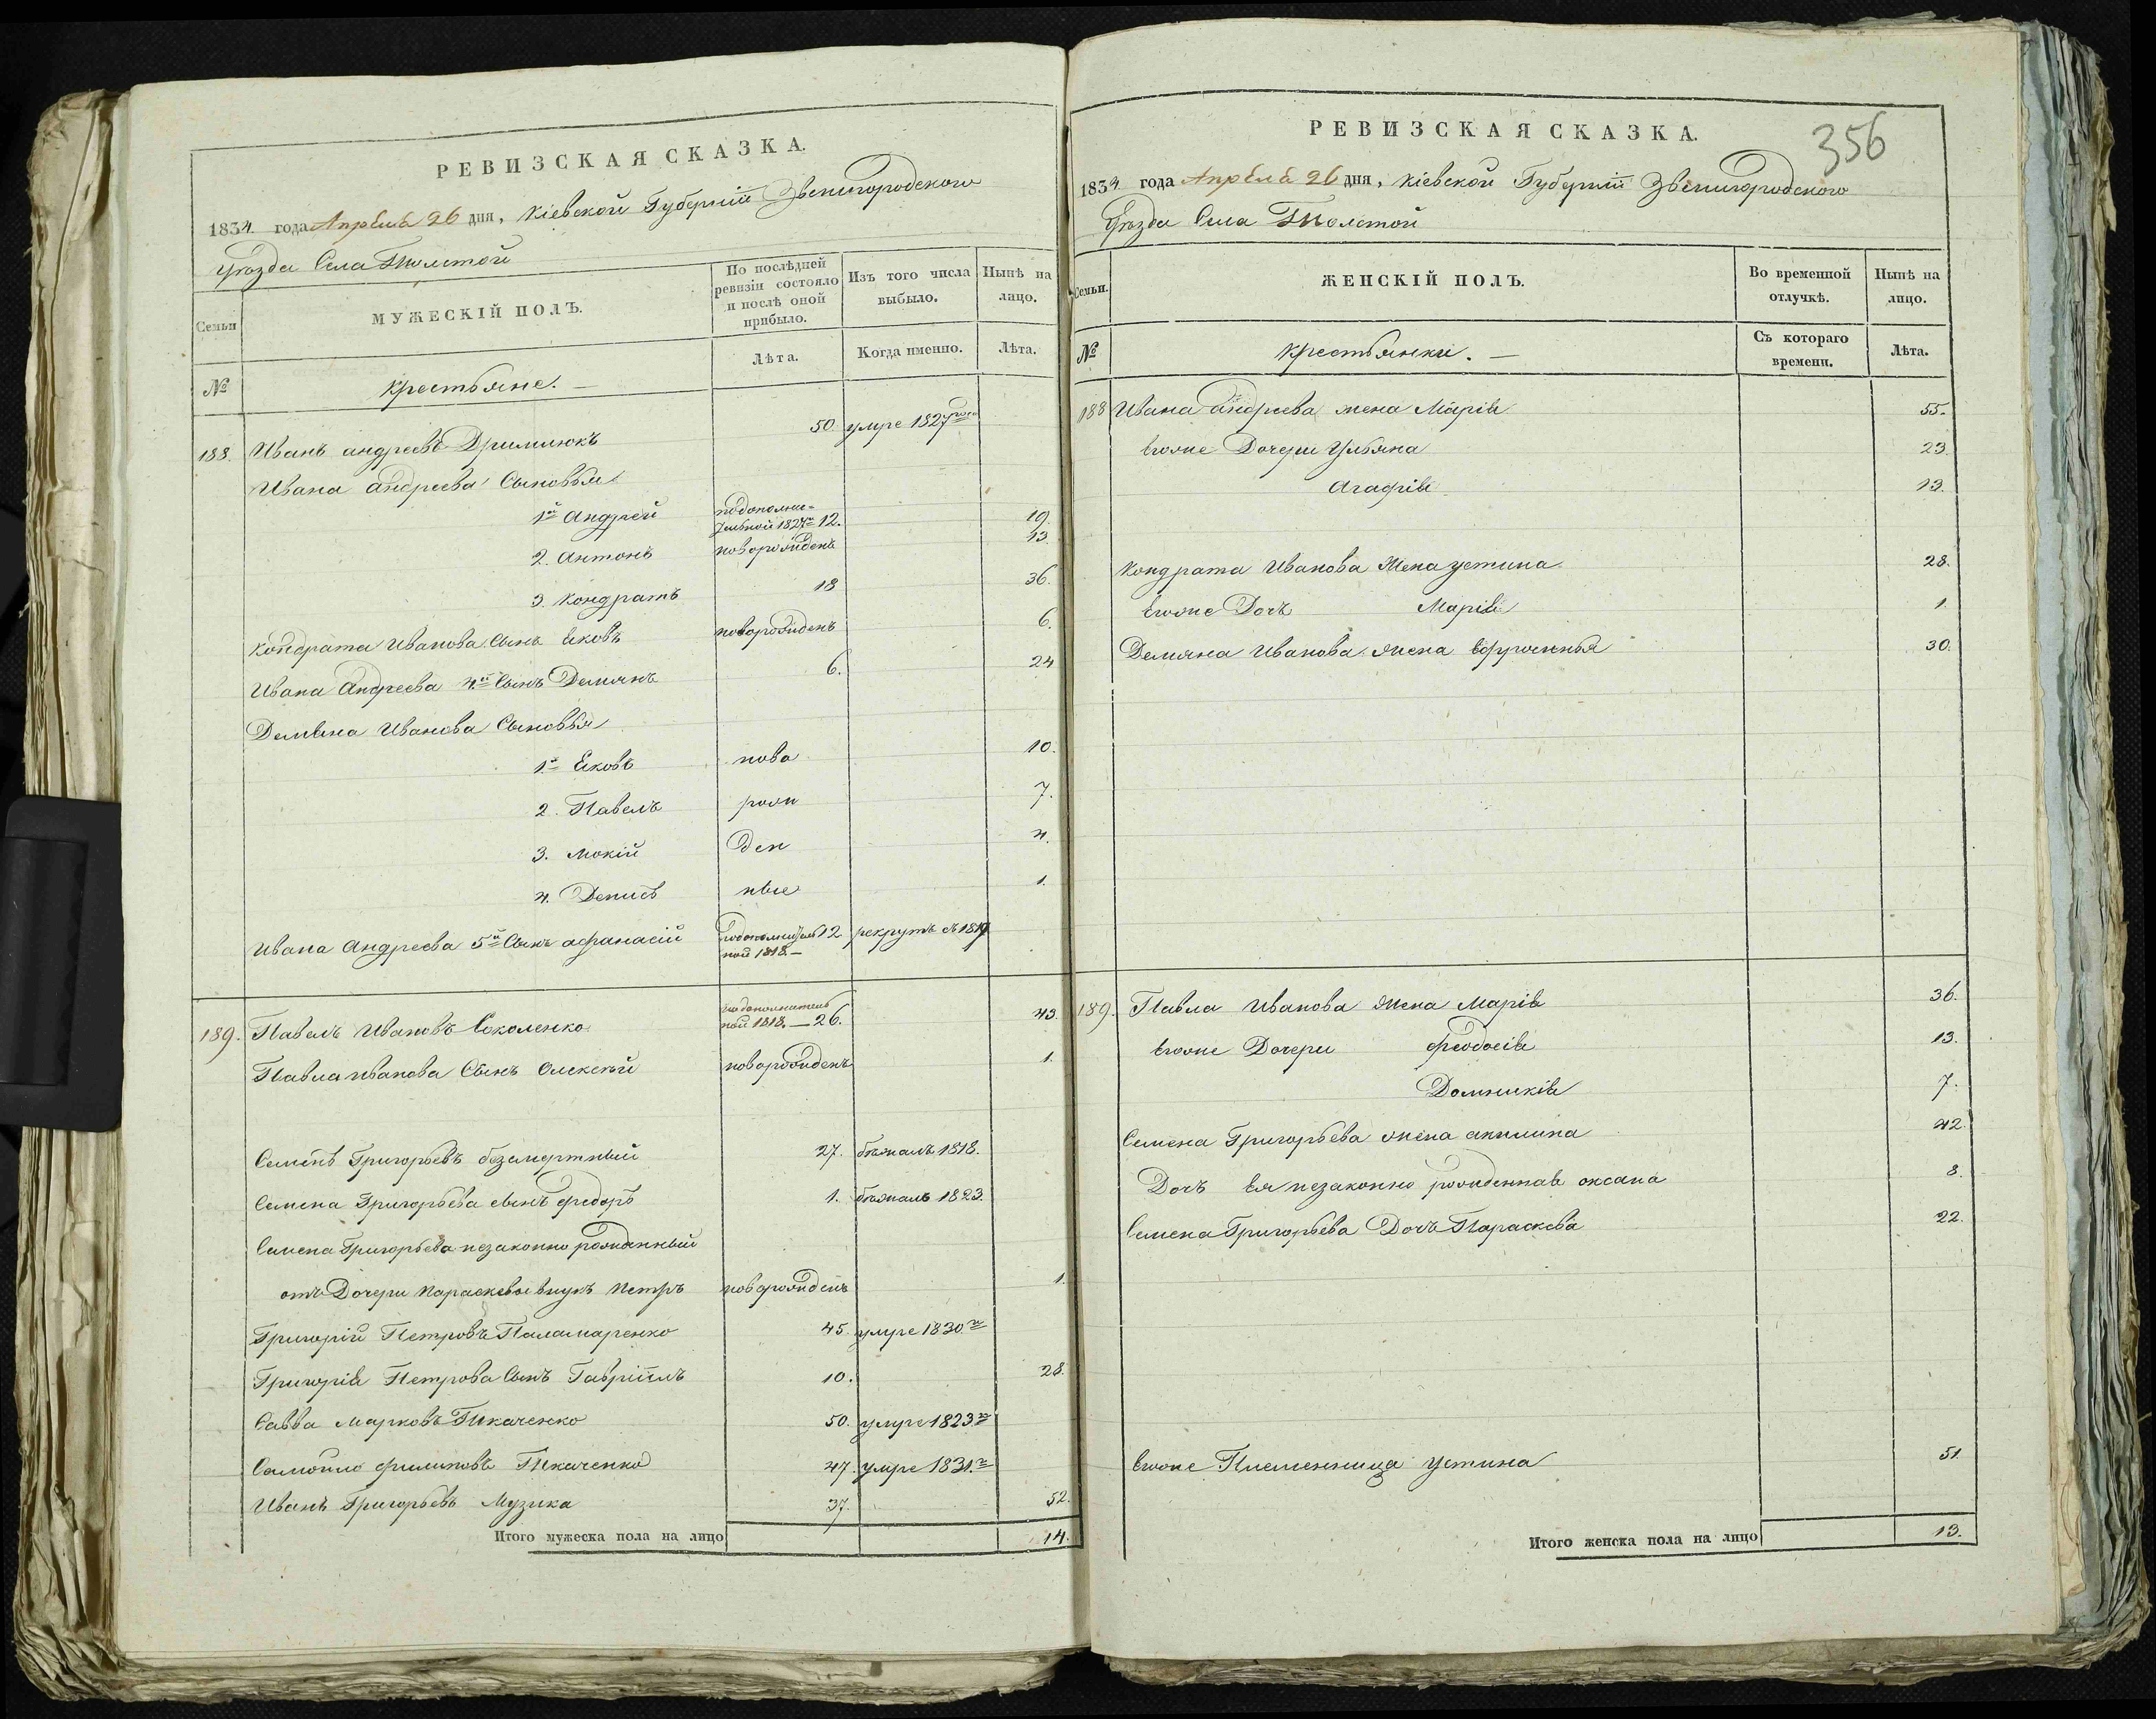 РЕВИЗСКАЯ СКАЗКА.
1834. года Апреля 26 дня, Кіевской Губерніи Звенигородского
уѣзда Села Толстой
Семьи
МУЖЕСКІЙ ПОЛЪ.
По послѣдней ревизіи состояло и послѣ оной прибыло.
Изъ того числа выбыло.
Нынѣ на лицо.
№
крестьяне. —
Лѣта.
Когда именно.
Лѣта.
188. Иванъ андреевъ 50. умре 1827 года
Ивана андреева Сыновья
1й Андрей подополни-тельной 1827го 12. 19.
2. антонъ новорожденъ 13.
3. Кондратъ 18 36.
Кондрата Иванова Сынъ Яковъ новорожденъ 6.
Ивана Андреева 4й Сынъ Демянъ 6. 24
Демяна Иванова Сыновья
1й Яковъ нова 10.
2. Павелъ рож 7.
3. Мокій ден 4.
4. Денисъ ные 1.
Ивана Андреева 5й Сынъ афанасій подополнитель 12 рекрутъ съ 1819
ной 1818. —
189. Павелъ Ивановъ Соколенко подополнитель ной 1818. — 26. 43.
Павла иванова Сынъ Олексѣй новорожденъ 1.
Семенъ Григорьевъ безсмертный 27. бѣжалъ 1818.
Семена Григорьева сынъ федоръ 1. бѣжалъ 1823.
Семена Григорьева незаконно рожданный
отъ Дочери Параскевы внукъ Петръ новорожденъ 1.
Григорій Петровъ Паламаренко 45. умре 1830го
Григорія Петрова Сынъ Гавріилъ 10. 28.
Савва Марковъ Ткаченко 50. умре 1823го
Самойло филиповъ Ткаченко 47. умре 1831.го
Иванъ Григорьевъ Музика 37. 52.
Итого мужеска пола на лицо 14.
356
РЕВИЗСКАЯ СКАЗКА.
1834 года Апреля 26 дня, Кіевской Губерніи Звенигородского
Уѣзда Села Толстой
Семьи.
ЖЕНСКІЙ ПОЛЪ.
Во временной отлучкѣ.
Нынѣ на лицо.
№
крестьянки. —
Съ котораго времени.
Лѣта.
188 Ивана андреева жена Марія 55.
Егоже Дочери Ульяна 23.
Агафія 13.
Кондрата Иванова Жена устина 28.
Егоже Дочъ Марія 1.
Демяна Иванова Жена 30.
189. Павла Иванова Жена Марія 36.
Егоже Дочери феодосія 13.
Домникія 7.
Семена Григорьева жена акилина 42.
Дочъ Ея незаконно рожденная оксана 8.
Семена Григорьева Дочъ Параскева 22.
Егоже Племенница Устина 51.
Итого женска пола на лицо 13.